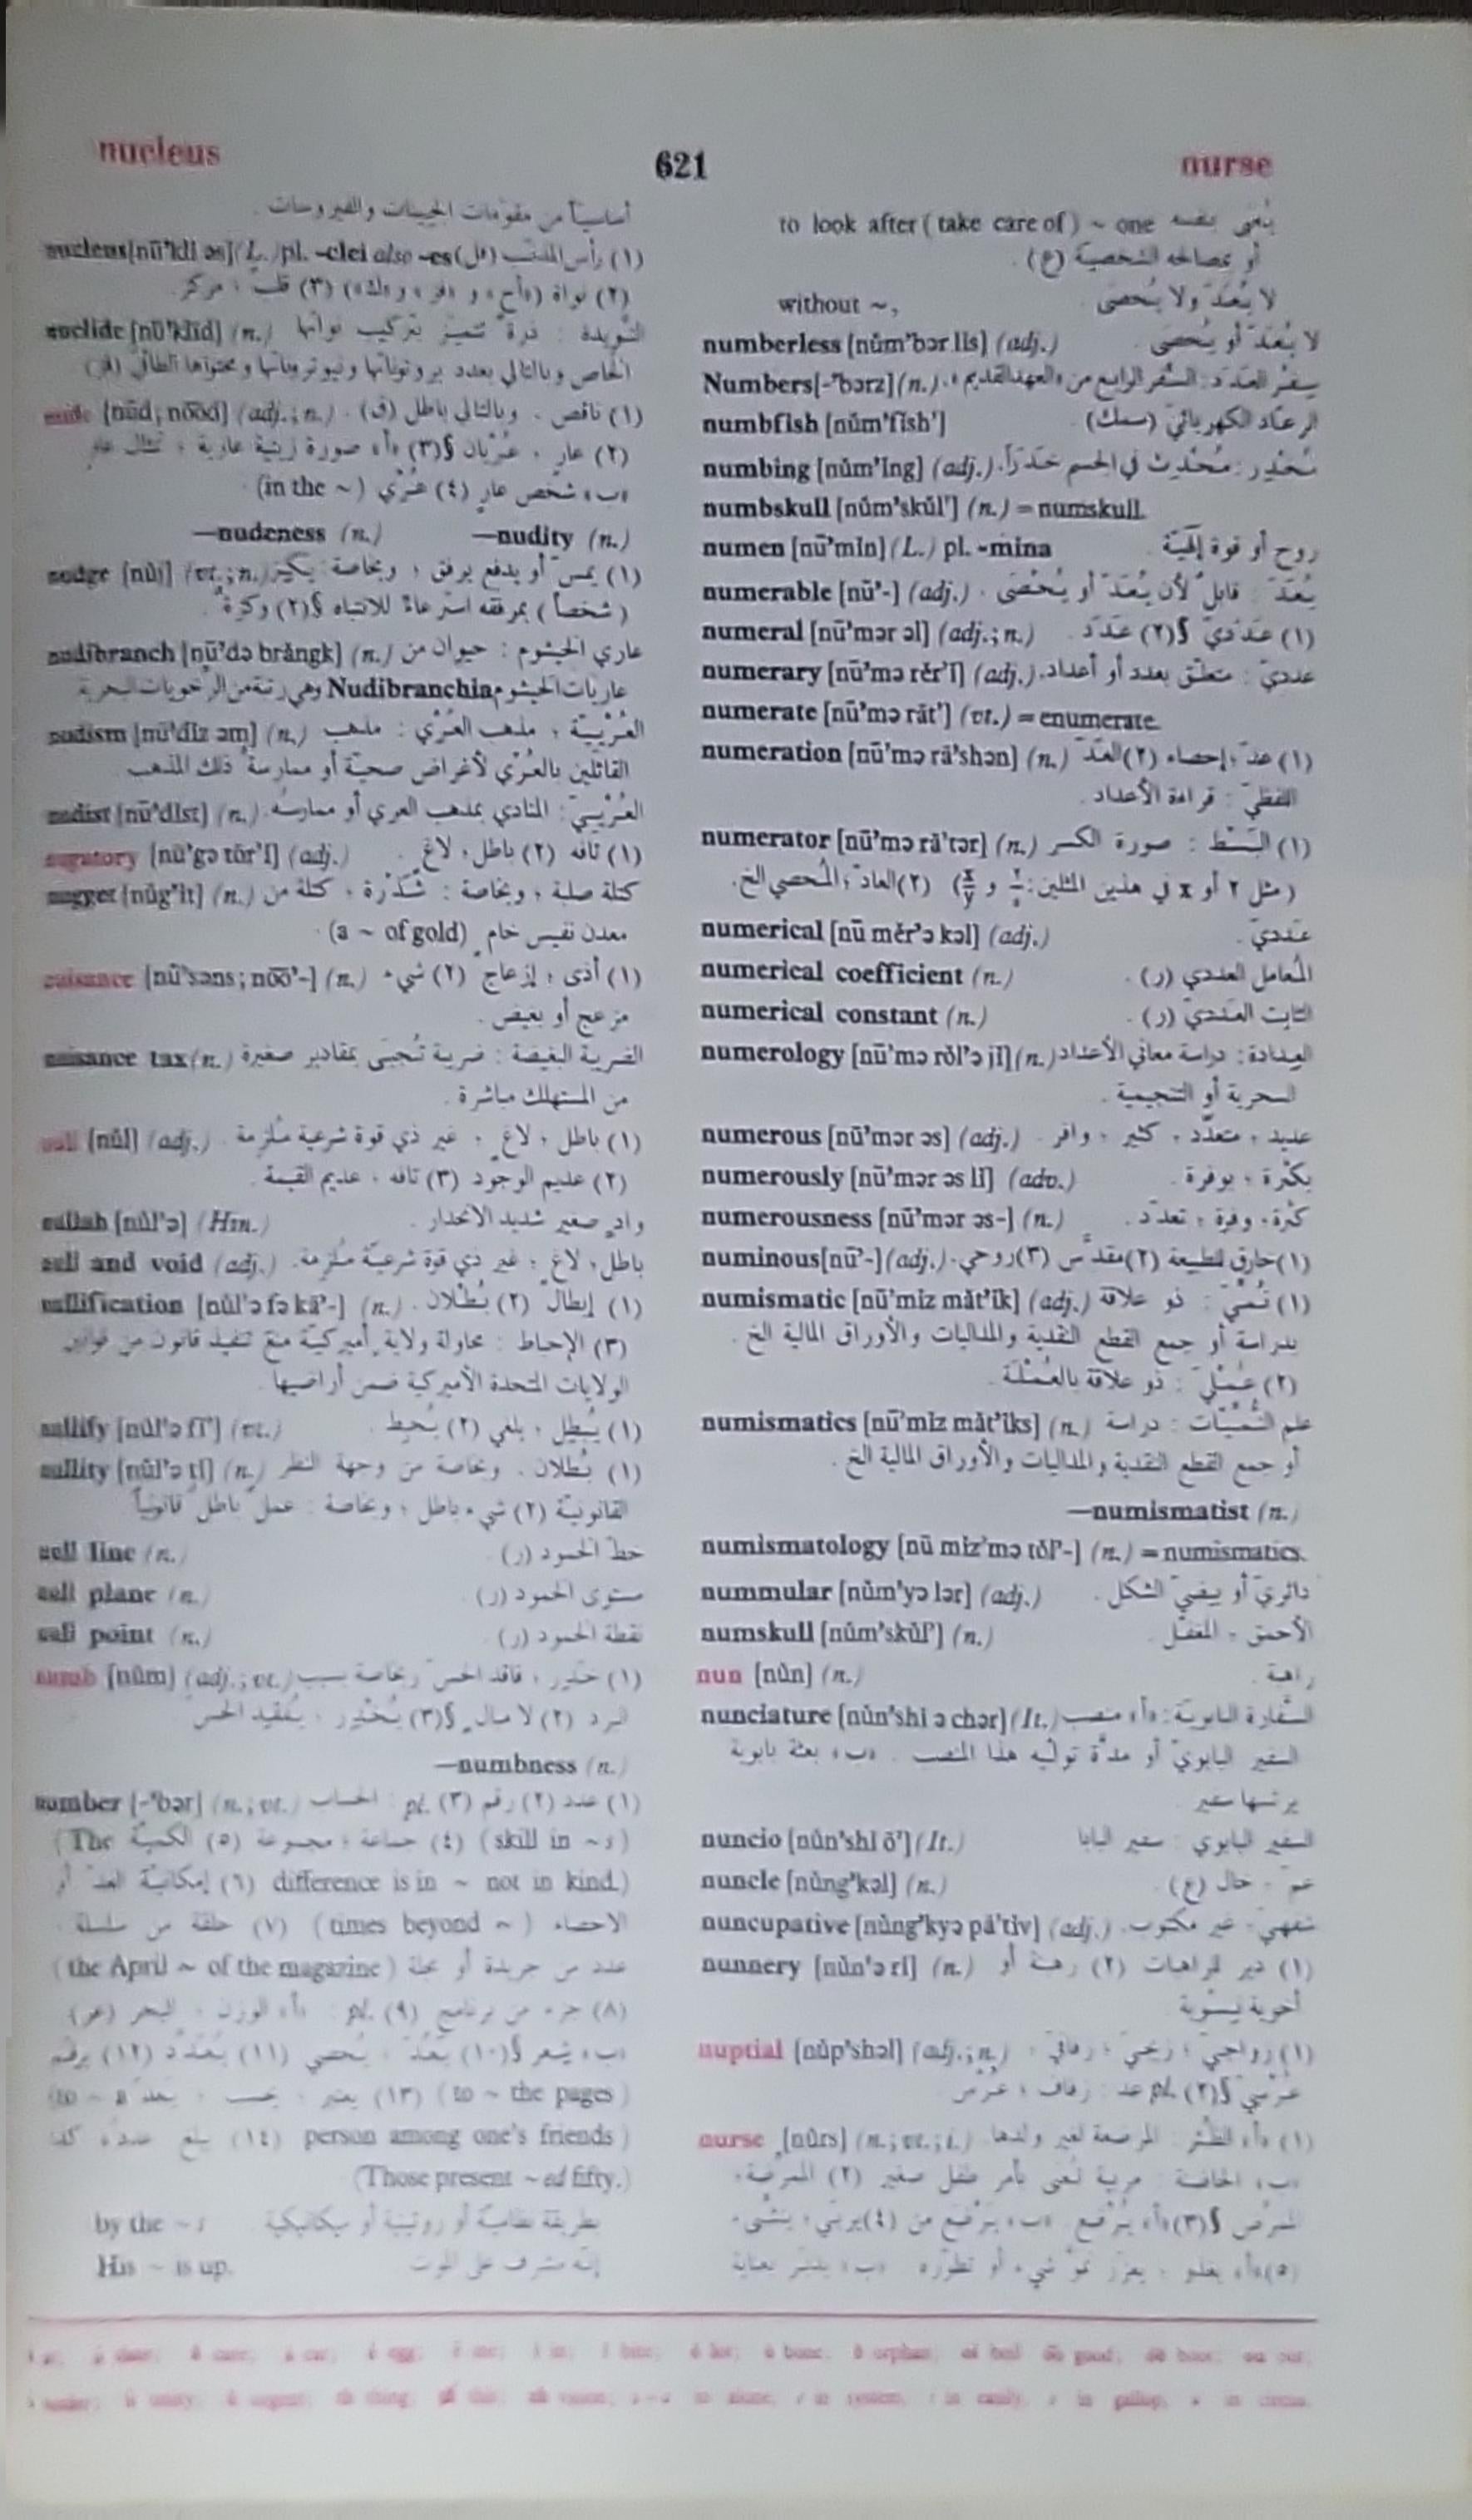 nucleus
621
nurse
أساسياً من مقومات الجينات والفيروسات .
nucleus [nū'kli əs] (L.) pl. -clei also -es (فل) (١) رأس المذنب
(٢) نواة («أح» و «فز» و «ك») (٣) قلب ؛ مركز .
nuclide [nū'klīd] (n.) النُّويدة : ذرة تتميز بتركيب نواتها
الخاص وبالتالي بعدد بروتوناتها ونيوتروناتها ومحتواها الطاقيّ (فز)
nude [nūd; nōōd] (adj.; n.) (١) ناقص ، وبالتالي باطل (ق) .
(٢) عارٍ ، عُرْيان §(٣) «أ» صورة زيتية عارية ؛ تمثال عارٍ
«ب» شخص عارٍ (٤) عُرْي (in the ~)
—nudeness (n.) —nudity (n.)
nudge [nŭj] (vt.; n.) (١) يمسّ أو يدفع برفق ، وبخاصة : يَكِز
(شخصاً) بمرفقه استرعاءً للانتباه §(٢) وكزة .
nudibranch [nū'də brăngk] (n.) عاري الخيشوم : حيوان من
عاريات الخيشوم Nudibranchia وهي رتبة من الرخويات البحرية
nudism [nū'dĭz əm] (n.) العُرْيِيّة ، مذهب العُرْي : مذهب
القائلين بالعُرْي لأغراض صحيّة أو ممارسة ذلك المذهب .
nudist [nū'dĭst] (n.) العُرْيِيّ : المنادي بمذهب العري أو ممارسه .
nugatory [nū'gə tōr'ĭ] (adj.) (١) تافه (٢) باطل ، لاغٍ .
nugget [nŭg'ĭt] (n.) كتلة صلبة ، وبخاصة : شَذْرة ، كتلة من
معدن نفيس خام (a ~ of gold) .
nuisance [nū'səns; nōō'-] (n.) (١) أذى ؛ إزعاج (٢) شيء
مزعج أو بغيض .
nuisance tax (n.) الضريبة البغيضة : ضريبة تُجبَى بمقادير صغيرة
من المستهلك مباشرة .
null [nŭl] (adj.) (١) باطل ، لاغٍ ، غير ذي قوة شرعية مُلزِمة .
(٢) عديم الوجود (٣) تافه ، عديم القيمة .
nullah [nŭl'ə] (Hin.) وادٍ صغير شديد الانحدار .
null and void (adj.) باطل ، لاغٍ ؛ غير ذي قوة شرعيّة مُلزِمة .
nullification [nŭl'ə fə kā'-] (n.) (١) إبطال (٢) بُطْلان .
(٣) الإحباط : محاولة ولاية أميركيّة منع تنفيذ قانون من قوانين
الولايات المتحدة الأميركية ضمن أراضيها .
nullify [nŭl'ə fī'] (vt.) (١) يُبطِل ، يلغي (٢) يُحبِط .
nullity [nŭl'ə tĭ] (n.) (١) بُطْلان ، وبخاصة من وجهة النظر
القانونيّة (٢) شيء باطل ، وبخاصة : عمل باطل قانونياً
null line (n.) خط الخمود (ر)
null plane (n.) مستوى الخمود (ر) .
null point (n.) نقطة الخمود (ر) .
numb [nŭm] (adj.; vt.) (١) خَدِر ، فاقد الحس وبخاصة بسبب
البرد (٢) لا مبالٍ §(٣) يُخْدِر ، يُفقِد الحس
—numbness (n.)
number [-'bər] (n.; vt.) (١) عدد (٢) رقم (٣) pl. : الحساب
(skill in ~s) (٤) جماعة ؛ مجموعة (٥) الكميّة (The
difference is in ~ not in kind.) (٦) إمكانيّة العدّ أو
الاحصاء (times beyond ~) (٧) حلقة من سلسلة
عدد من جريدة أو مجلة (the April ~ of the magazine)
(٨) جزء من برنامج (٩) pl. : «أ» الوزن ، البحر (عر)
«ب» شعر §(١٠) يَعُدّ ، يُحصي (١١) يُعَدِّد (١٢) يرقّم
(to ~ the pages) (١٣) يعتبر ، يحسب ، يعدّ (to ~ a
person among one's friends) (١٤) يبلغ عدده كذا
(Those present ~ed fifty.)
by the ~s بطريقة نظاميّة أو روتينية أو ميكانيكية
His ~ is up. إنّه مشرف على الموت
to look after (take care of) ~ one يُعنى بنفسه
أو بمصالحه الشخصيّة (ع) .
without ~, لا يُعَدّ ولا يُحصَى
numberless [nŭm'bər lĭs] (adj.) لا يُعَدّ أو يُحصَى .
Numbers [-'bərz] (n.) سِفْر العَدَد : السِّفر الرابع من «العهد القديم» .
numbfish [nŭm'fĭsh'] الرعّاد الكهربائيّ (سمك)
numbing [nŭm'ĭng] (adj.) مُخْدِر : مُحْدِث في الجسم خَدَراً .
numbskull [nŭm'skŭl'] (n.) = numskull.
numen [nū'mĭn] (L.) pl. -mina روح أو قوة إلهيّة .
numerable [nū'-] (adj.) يُعَدّ : قابلٌ لأن يُعَدّ أو يُحْصَى .
numeral [nū'mər əl] (adj.; n.) (١) عَدَديّ §(٢) عَدَد .
numerary [nū'mə rĕr'ĭ] (adj.) عدديّ : متعلق بعدد أو أعداد .
numerate [nū'mə rāt'] (vt.) = enumerate.
numeration [nū'mə rā'shən] (n.) (١) عدّ ؛ إحصاء (٢) العَدّ
اللفظيّ : قراءة الأعداد .
numerator [nū'mə rā'tər] (n.) (١) البَسْط : صورة الكسر
(مثل ٢ أو x في هذين المثلين: و x/y) (٢) العادّ ؛ المُحصي الخ.
numerical [nū mĕr'ə kəl] (adj.) عَدَديّ .
numerical coefficient (n.) المُعامل العددي (ر) .
numerical constant (n.) الثابت العَدَديّ (ر) .
numerology [nū'mə rŏl'ə jĭ] (n.) العِدادة : دراسة معاني الأعداد
السحرية أو التنجيمية .
numerous [nū'mər əs] (adj.) عديد ، متعدّد ، كثير ، وافر .
numerously [nū'mər əs lĭ] (adv.) بكثرة ، بوفرة .
numerousness [nū'mər əs-] (n.) كثرة ، وفرة ؛ تعدّد .
numinous [nū'-] (adj.) (١) خارق للطبيعة (٢) مقدّس (٣) روحي .
numismatic [nū'mĭz măt'ĭk] (adj.) (١) نُمّيّ : ذو علاقة
بدراسة أو جمع القطع النقدية والمداليات والأوراق المالية الخ .
(٢) عُمْليّ : ذو علاقة بالعُمْلة .
numismatics [nū'mĭz măt'ĭks] (n.) علم النُّمِّيّات : دراسة
أو جمع القطع النقدية والمداليات والأوراق المالية الخ .
—numismatist (n.)
numismatology [nū mĭz'mə tŏl'-] (n.) = numismatics.
nummular [nŭm'yə lər] (adj.) دائريّ أو بيضيّ الشكل .
numskull [nŭm'skŭl'] (n.) الأحمق ، المغفّل .
nun [nŭn] (n.) راهبة .
nunciature [nŭn'shĭ ə chər] (It.) السفارة البابويّة : «أ» منصب
السفير البابويّ أو مدّة تولّيه هذا المنصب . «ب» بعثة بابوية
يرئسها سفير .
nuncio [nŭn'shĭ ō'] (It.) السفير البابوي : سفير البابا
nuncle [nŭng'kəl] (n.) عم ، خال (ع) .
nuncupative [nŭng'kyə pā'tĭv] (adj.) شفهيّ ، غير مكتوب .
nunnery [nŭn'ə rĭ] (n.) (١) دير للراهبات (٢) رهبنة أو
أخوية نِسْوية
nuptial [nŭp'shəl] (adj.; n.) (١) زواجيّ ؛ زيجيّ ؛ زفافيّ ،
عُرْسيّ §(٢) pl. عد : زفاف ؛ عُرْس .
nurse [nûrs] (n.; vt.; i.) (١) «أ» الظِّئر : المرضعة لغير ولدها .
«ب» الحاضنة : مربية تُعنى بأمر طفل صغير (٢) الممرّضة ،
الممرّض §(٣) «أ» يُرْضِع «ب» يَرْضَع من (٤) يربّي ؛ ينشّىء .
(٥) «أ» يغذو ، يعزّز نموّ شيء أو تطوّره «ب» يدبّر بعناية